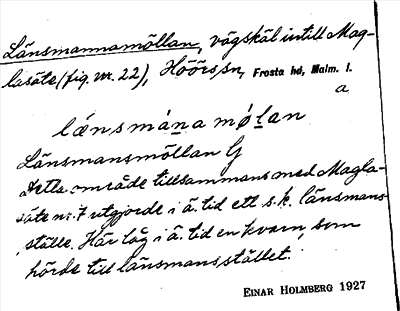 Länsmannamöllan, vägskäl intill Mag-
lasäte (fig. nr. 22), Höörs sn, Frosta hd, Malm. l.
a
lænsmána mø̀lan
Länsmansmöllan G
Detta område tillsammans med Magla-
säte nr. 7 utgjorde i ä. tid ett s.k. länsmans-
ställe. Här låg i ä. tid en kvarn, som
hörde till länsmansstället.
EINAR HOLMBERG 1927